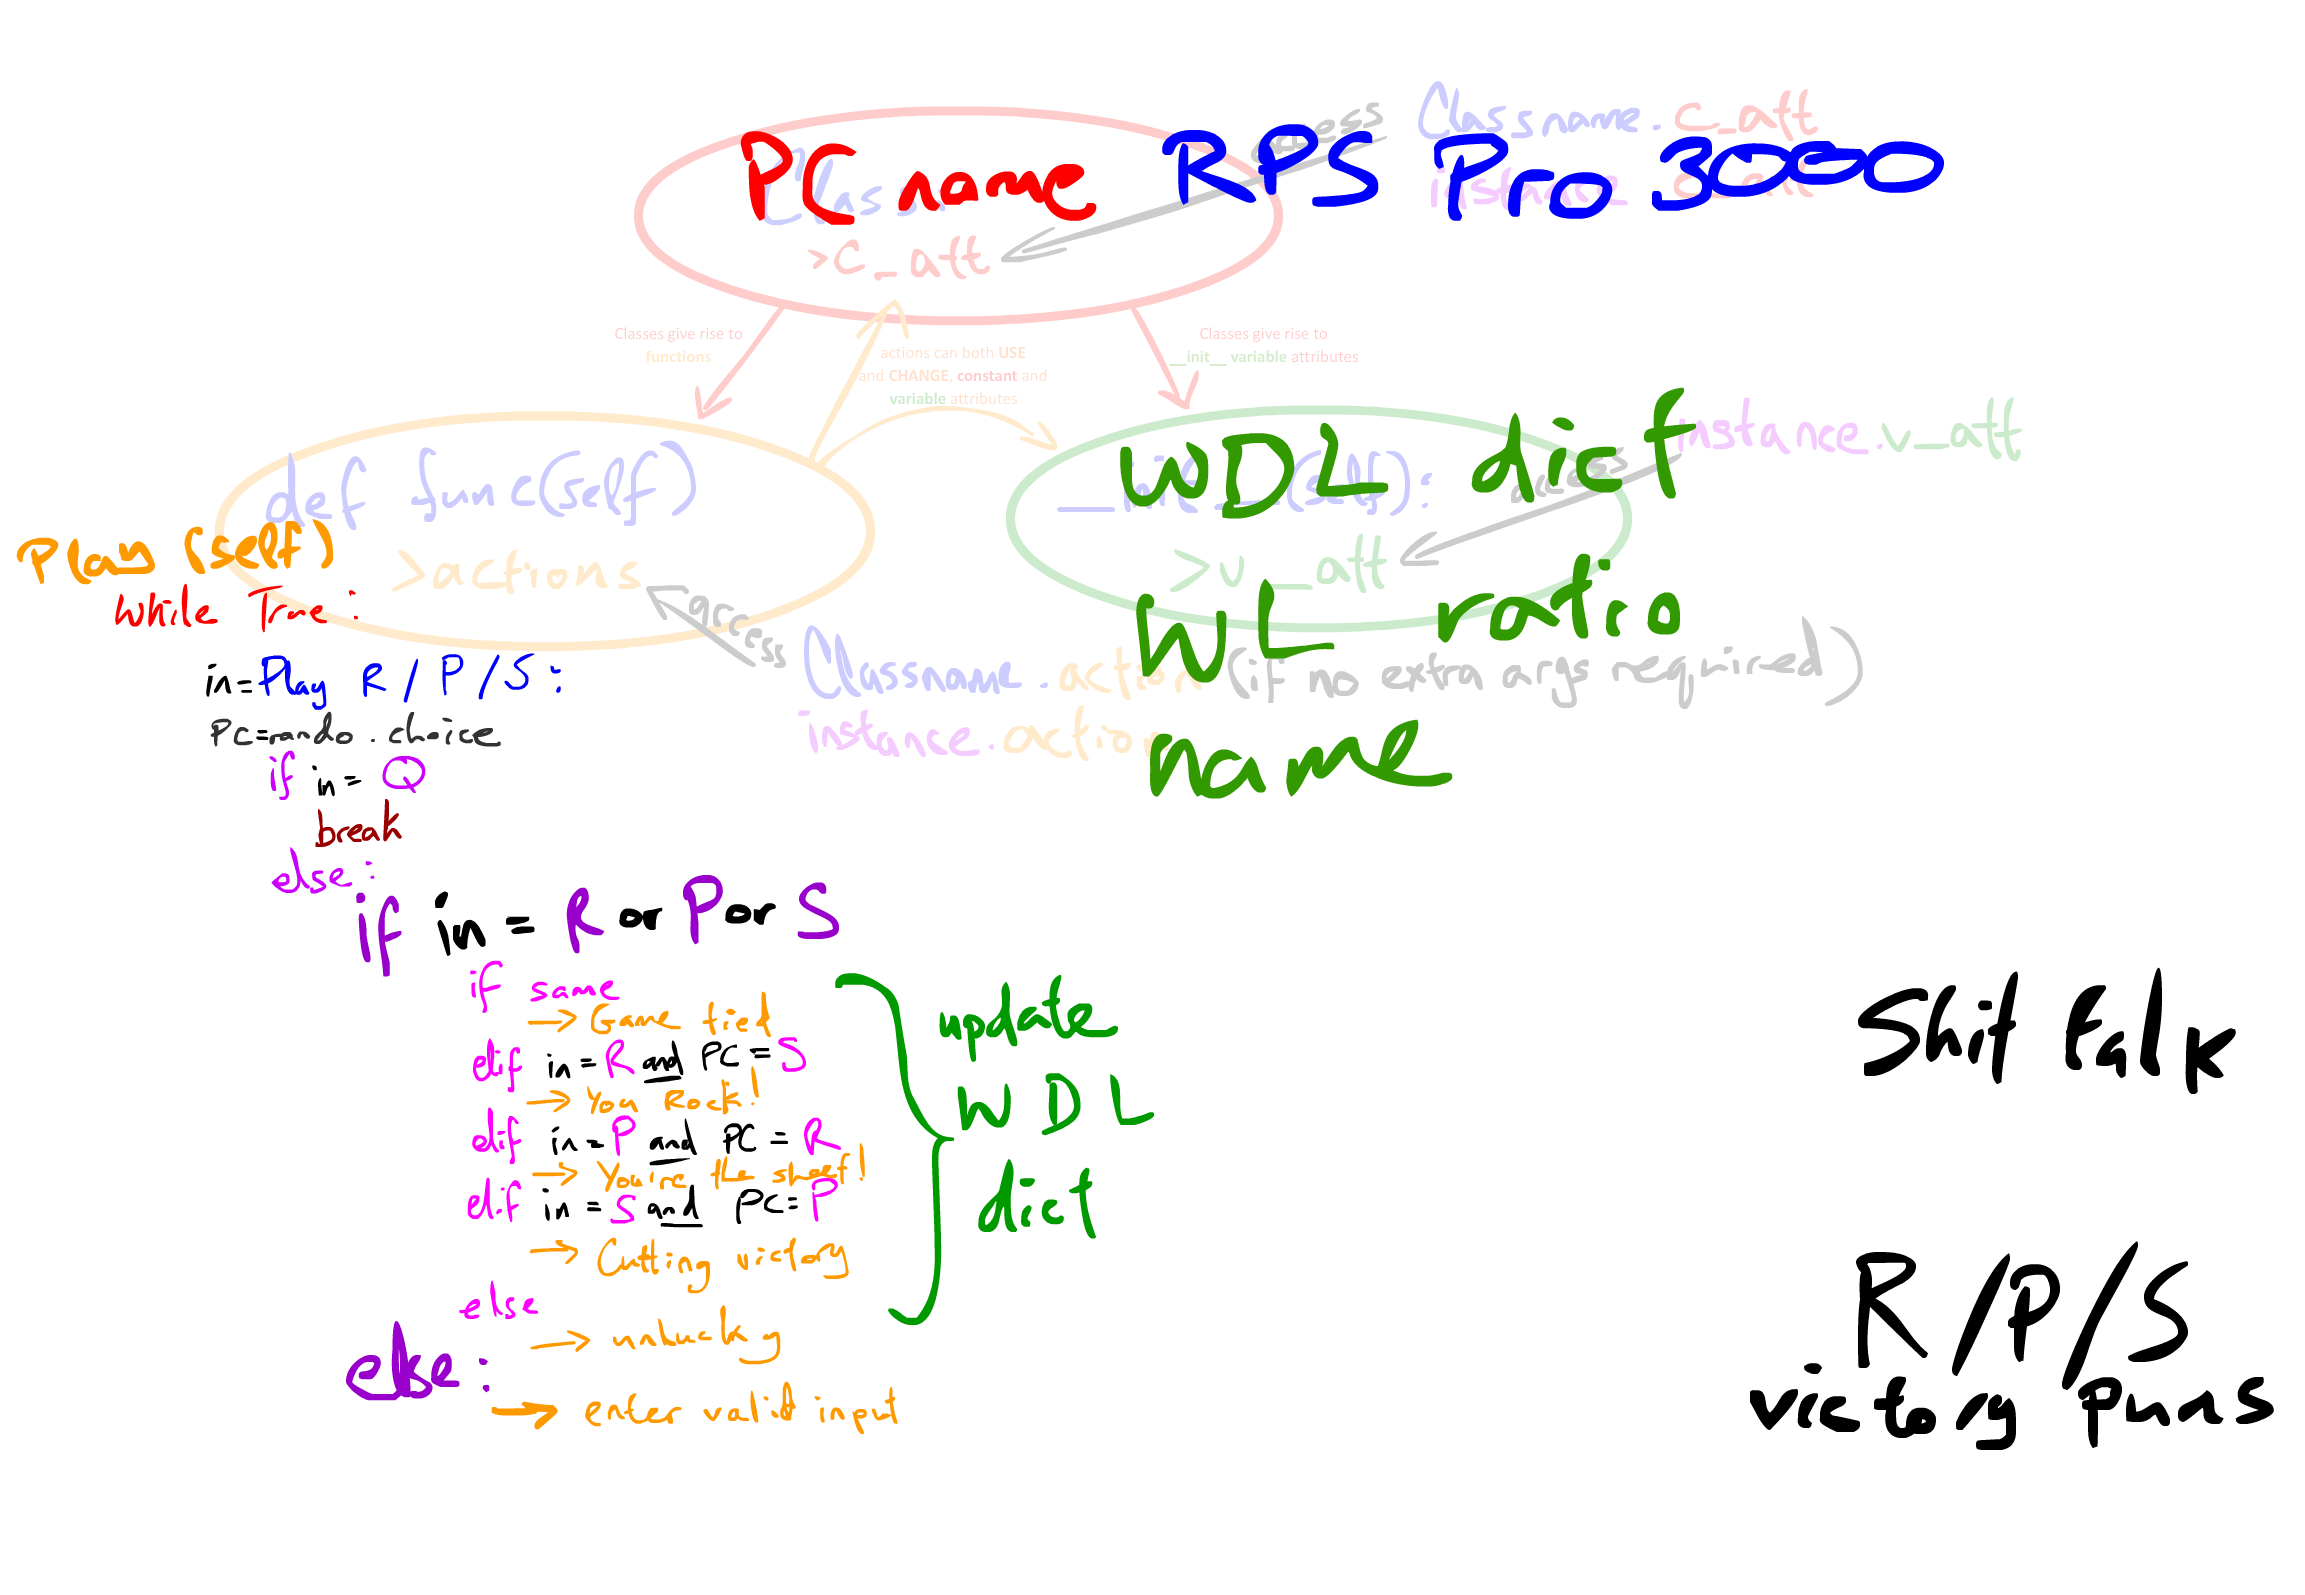 PC name RPS Pro 3000
Class
access
Classname.c_att
instance c_att
>c_att
Classes give rise to
functions
actions can both USE
and CHANGE, constant and
variable attributes
Classes give rise to
__init__ variable attributes
def func(self)
>actions
WDL dict
__init__(self):
>v_att
access
instance.v_att
WL ratio
name
access
Classname.action (if no extra args required)
instance.action
Play (self)
While True:
in=Play R/P/S:
PC=rando.choice
if in= Q
break
else:
if in = R or P or S
if same
→ Game tied
elif in=R and PC=S
→ You Rock!
elif in=P and PC=R
→ You're the sheet!
elif in=S and PC=P
→ Cutting victory
else
→ unlucky
else:
→ enter valid input
update
WDL
dict
Shit talk
R/P/S
victory Puns